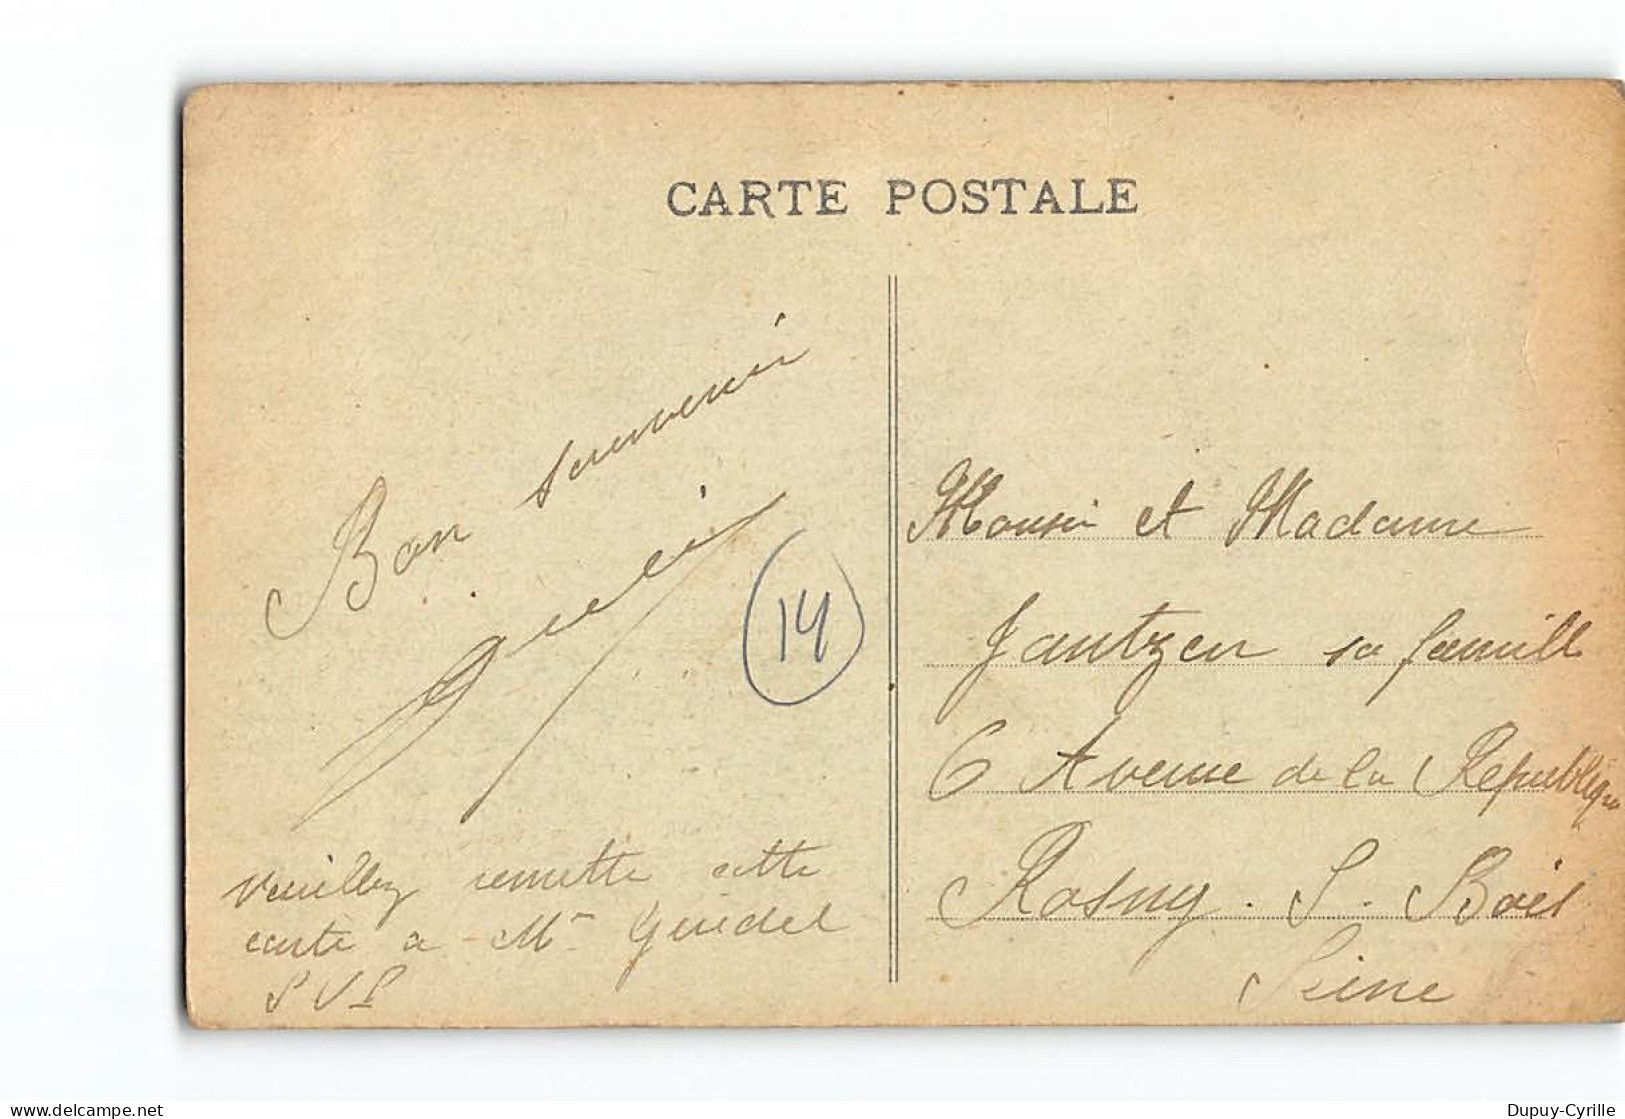 CARTE POSTALE
Bon souvenir
14
veuillez remettre cette
carte a Mr Guedel
SVP
Monsieur et Madame
Jantzen sa famille
6 Avenue de la République
Rosny. S. Bois
Seine
delcampe.net
Dupuy-Cyrille